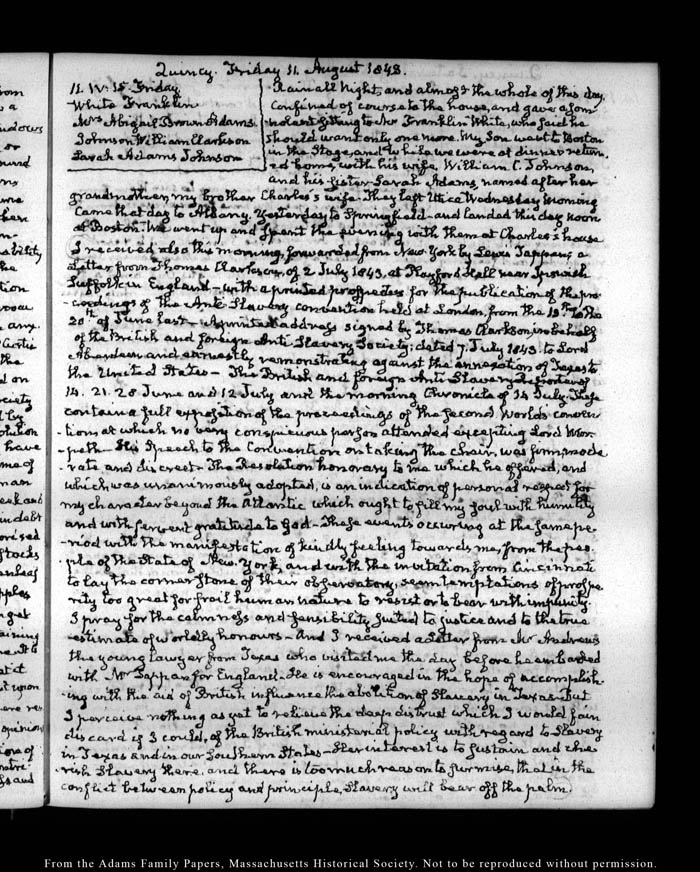 Quincy. Friday 11. August 1843.
11. IV: 15 Friday.
White Franklin
Mrs Abigail Brown Adams.
Johnson William Clarkson
Sarah Adams Johnson
Rain all Night, and almost the whole of this day.
Confined of course to the house, and gave a somnolent
sitting to Mr Franklin White, who said he
should want only one more. My Son went to Boston
in the Stage, and while we were at dinner return-
ed home, with his wife, William C. Johnson,
and his Sister Sarah Adams, named after her
grandmother, my brother Charles's wife. They left Utica Wednesday Morning
Came that day to Albany. Yesterday to Springfield and landed this day noon
at Boston. We went up and spent the evening with them at Charles's house
I received also this morning, forwarded from New-York by Lewis Tappan, a
Letter from Thomas Clarkson, of 2 July 1843. at Playford Hall near Ipswich
Suffolk in England – with a printed prospectus for the publication of the pro-
-ceedings of the Anti-Slavery convention held at London, from the 13th to the
20th of June last – A printed address signed by Thomas Clarkson, in behalf
of the British and foreign Anti Slavery Society; dated 7. July 1843. to Lord
Aberdeen and earnestly remonstrating against the annexation of Texas to
the United States – The British and foreign Anti Slavery Reporter of
14. 21. 28 June and 12 July and the morning Chronicle of 14 July. These
contain a full exposition of the proceedings of the second World's conven-
-tion, at which no very conspicuous person attended excepting Lord Mor-
-peth – His Speech to the Convention on taking the chair, was firm, mode-
rate and discreet – The Resolution honorary to me which he offered, and
which was unanimously adopted, is an indication of personal respect for
my character beyond the Atlantic which ought to fill my soul with humility
and with fervent gratitude to God – These events occurring at the same pe-
-riod with the manifestation of kindly feeling towards me, from the peo-
ple of the State of New-York, and with the invitation from Cincinnati
to lay the corner Stone of their observatory, seem temptations of prospe-
rity too great for frail human nature to resist or to bear with impunity.
I pray for the calmness and sensibility suited to justice and to the true
estimate of worldly honours – And I received a Letter from Mr Andrews
the young lawyer from Texas who visited me the day before he embarked
with Mr Tappan for England. He is encouraged in the hope of accomplish-
-ing with the aid of British influence the abolition of Slavery in Texas. But
I perceive nothing as yet to relieve the deep distrust which I would fain
discard if I could, of the British ministerial policy with regard to Slavery
in Texas and in our Southern States – Her interest is to sustain and che-
rish Slavery there, and there is too much reason to surmise, that in the
conflict between policy and principle, Slavery will bear off the palm.
From the Adams Family Papers, Massachusetts Historical Society. Not to be reproduced without permission.